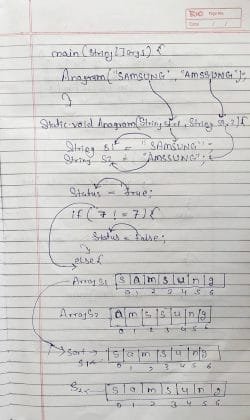 main(String[] args) {
Anagram("SAMSUNG", "AMSSUNG");
}
Static void Anagram(String s1, String s2) {
String S1 = "SAMSUNG";
String S2 = "AMSSUNG";
Status = True;
if( 7 != 7) {
Status = false;
}
else {
Array S1 S a m s u n g
0 1 2 3 4 5 6
Array S2 a m s s u n g
0 1 2 3 4 5 6
Sort → S a m s u n g
S1 0 1 2 3 4 5 6
S2 → S a m s u n g
0 1 2 3 4 5 6